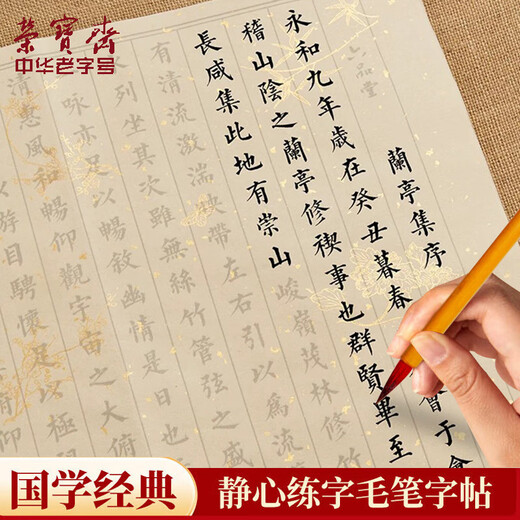 榮寶齋
中华老字号
品堂
蘭亭集序
永和九年歲在癸丑暮春會于會
稽山陰之蘭亭修禊事也群賢畢至
長咸集此地有崇山峻嶺茂林修竹
有清流激湍映帶左右引以為流
列坐其次雖無絲竹管弦之盛
詠亦足以暢敘幽情是日也
清惠風和暢仰觀宇宙之大俯
遊目騁懷足以極
俯仰
国学经典
静心练字毛笔字帖